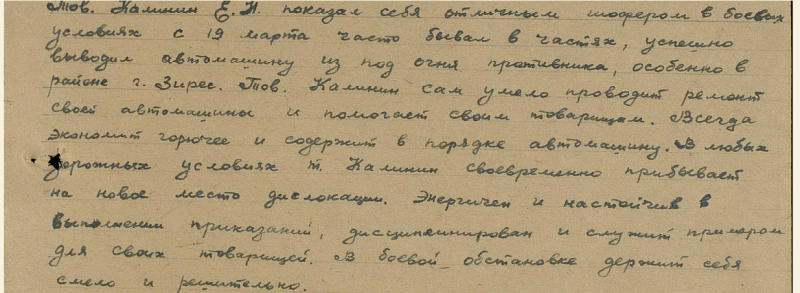 Тов. Калинин Е. И. показал себя отличным шофером в боевых
условиях с 19 марта часто бывал в частях, успешно
выводил автомашину из под огня противника, особенно в
районе г. Зирес. Тов. Калинин сам умело проводит ремонт
своей автомашины и помогает своим товарищам. Всегда
экономит горючее и содержит в порядке автомашину. В любых
дорожных условиях т. Калинин своевременно прибывает
на новое место дислокации. Энергичен и настойчив в
выполнении приказаний, дисциплинирован и служит примером
для своих товарищей. В боевой обстановке держит себя
смело и решительно.